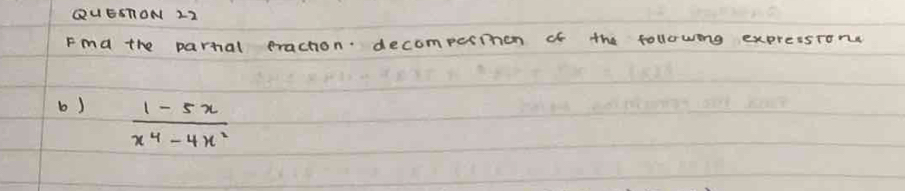 QUESTION 22
Find the partial fraction. decomposition of the following expressions
b) 1 - 5x
x⁴ - 4x²